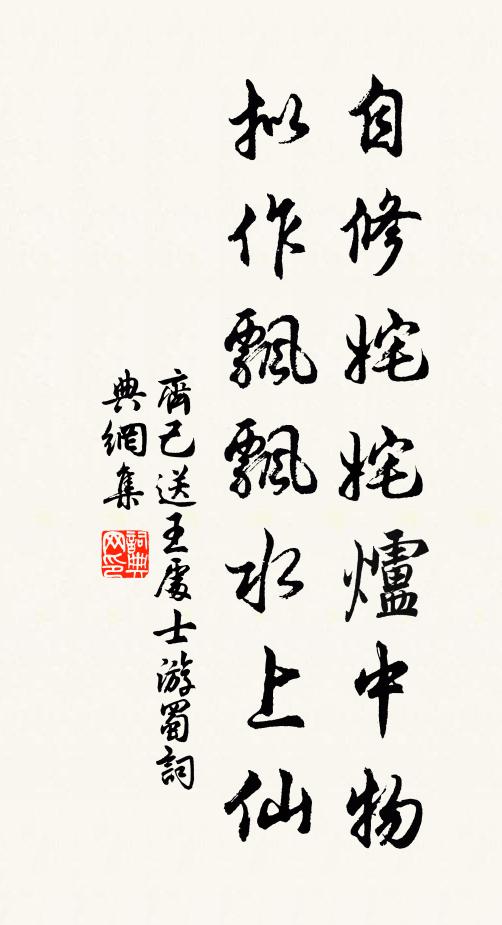 自修姹姹爐中物
擬作飄飄水上仙
齊己送王處士游蜀詞
典網集
詞典
网印